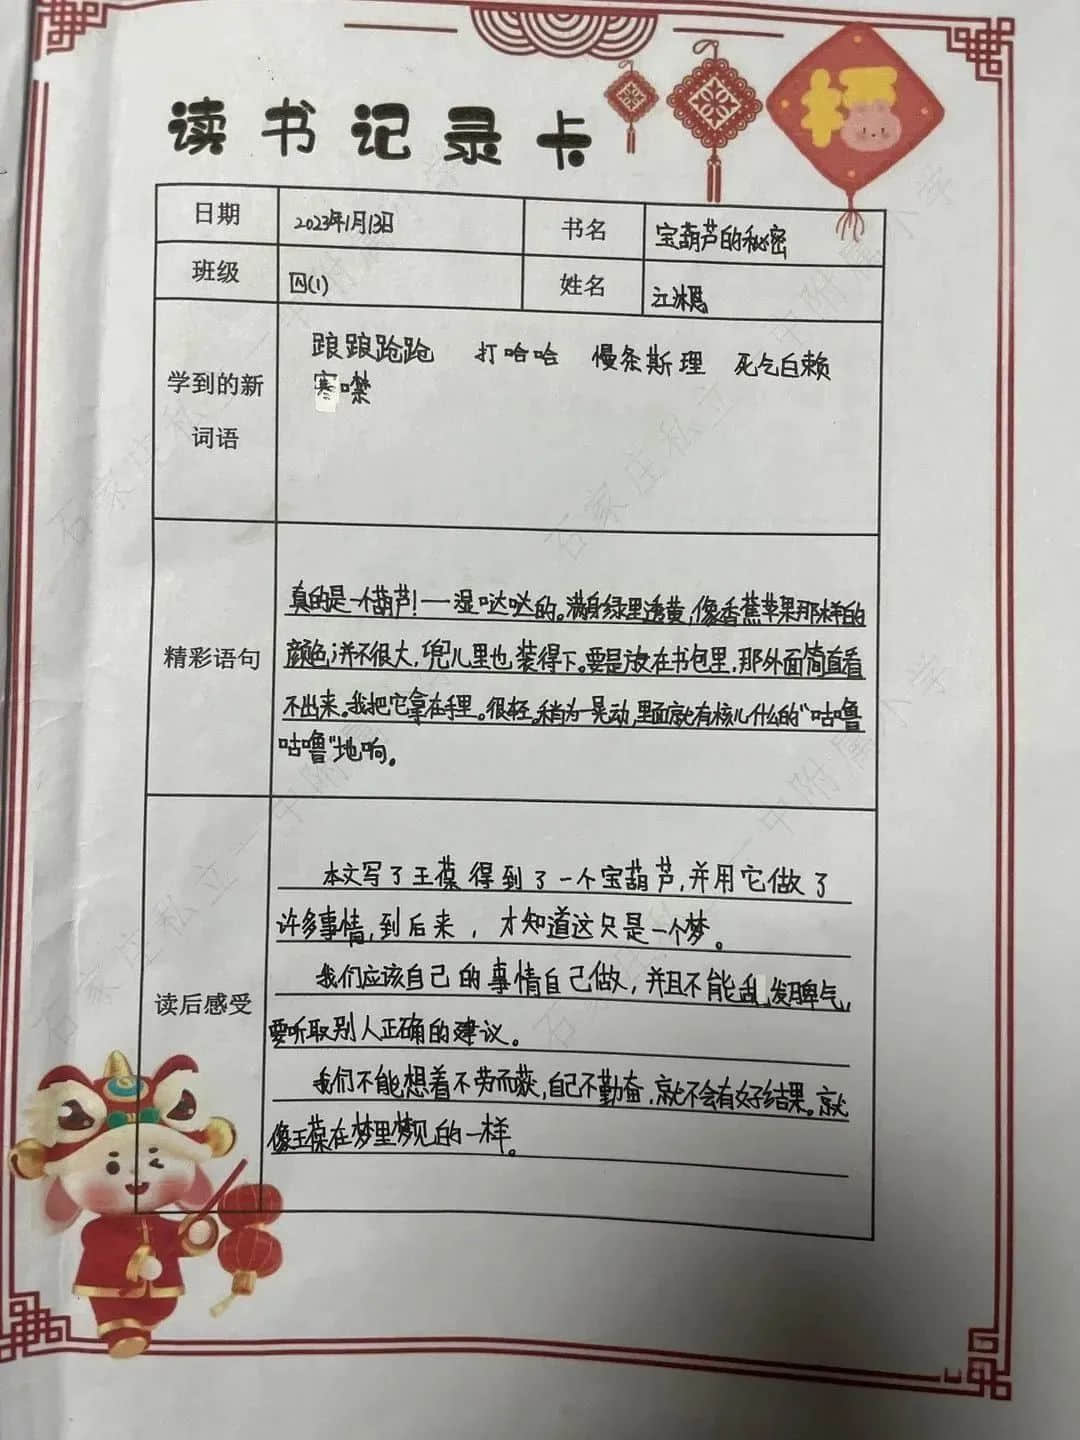 福
读书记录卡
日期 2023年1月13日 书名 宝葫芦的秘密
班级 四(1) 姓名 江冰
学到的新词语
踉踉跄跄 打哈哈 慢条斯理 死乞白赖
寒噤
精彩语句
真的是一个葫芦!一湿哒哒的。满身绿里透黄,像香蕉苹果那样的
颜色,并不很大,兜儿里也装得下。要是放在书包里,那外面简直看
不出来。我把它拿在手里。很轻。稍为一晃动,里面就有核儿什么的“咕噜
咕噜”地响。
读后感受
本文写了王葆得到了一个宝葫芦,并用它做了
许多事情,到后来,才知道这只是一个梦。
我们应该自己的事情自己做,并且不能乱发脾气,
要听取别人正确的建议。
我们不能想着不劳而获,自己不勤奋,就不会有好结果。就
像王葆在梦里梦见的一样。
石家庄私立一中附属小学